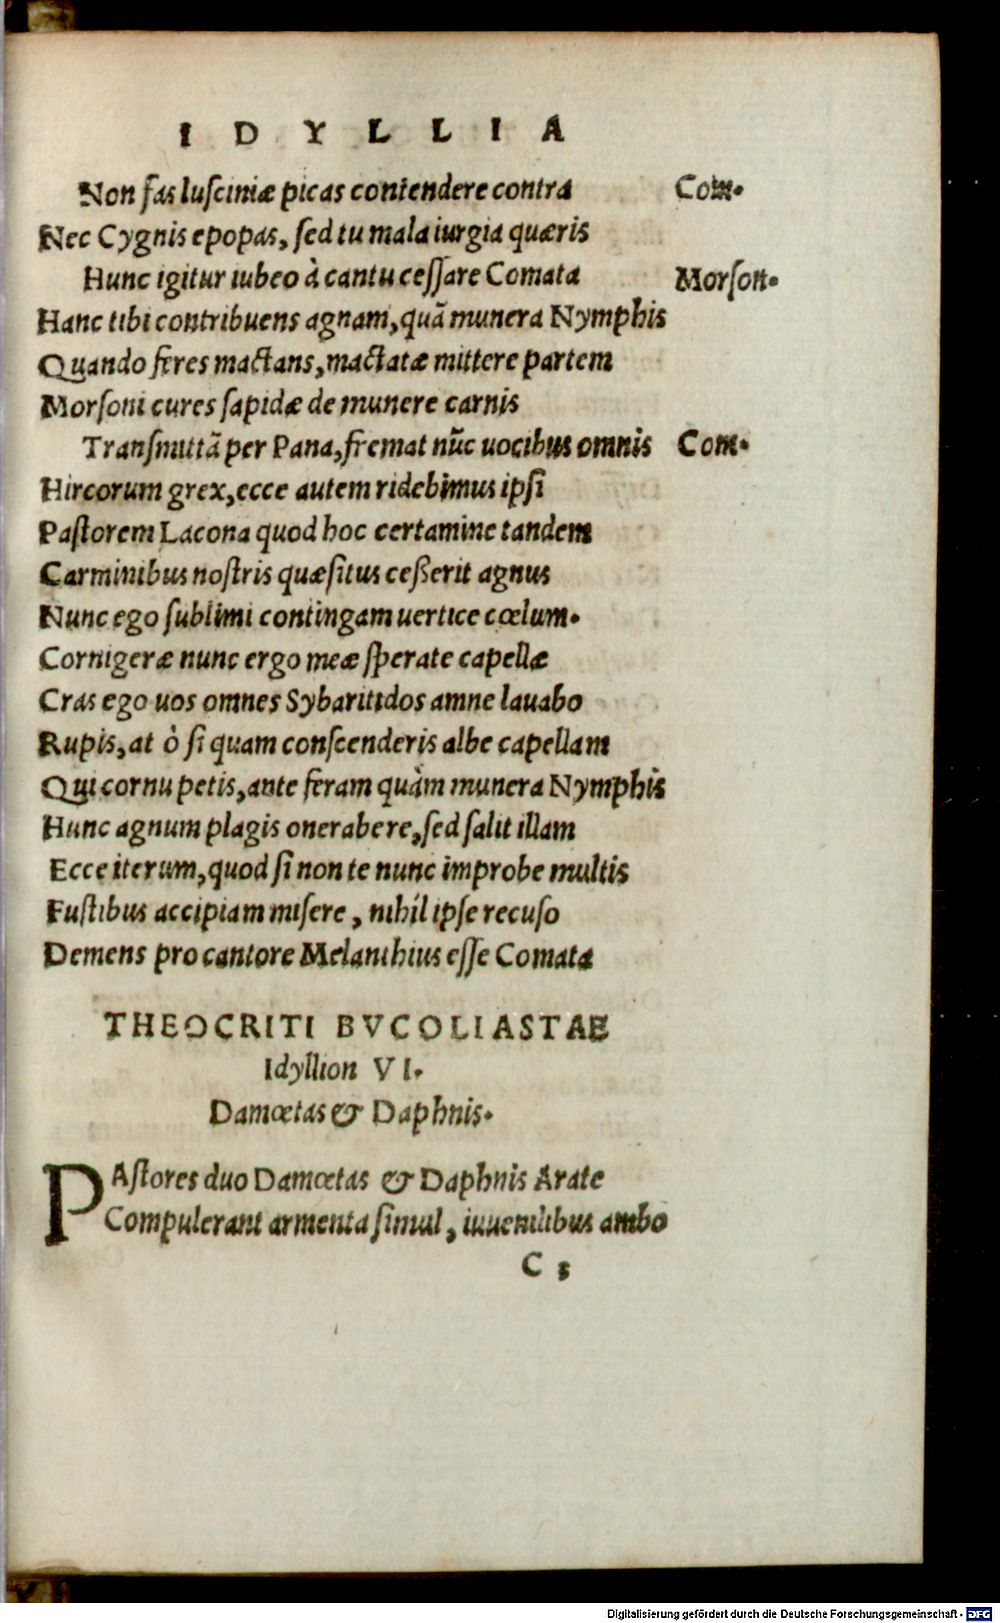 IDYLLIA
Non fas lusciniæ picas contendere contra Com.
Nec Cygnis epopas, sed tu mala iurgia quæris
Hunc igitur iubeo à cantu cessare Comata Morson.
Hanc tibi contribuens agnam, quã munera Nymphis
Quando feres mactans, mactatæ mittere partem
Morsoni cures sapidæ de munere carnis
Transmittã per Pana, fremat nũc uocibus omnis Com.
Hircorum grex, ecce autem ridebimus ipsi
Pastorem Lacona quod hoc certamine tandem
Carminibus nostris quæsitus ceßerit agnus
Nunc ego sublimi contingam uertice cœlum.
Cornigeræ nunc ergo meæ sperate capellæ
Cras ego uos omnes Sybaritidos amne lauabo
Rupis, at ò si quam conscenderis albe capellam
Qui cornu petis, ante feram quàm munera Nymphis
Hunc agnum plagis onerabere, sed salit illam
Ecce iterum, quod si non te nunc improbe multis
Fustibus accipiam misere, nihil ipse recuso
Demens pro cantore Melanthius esse Comata
THEOCRITI BVCOLIASTAE
Idyllion VI.
Damœtas & Daphnis.
PAstores duo Damœtas & Daphnis Arate
Compulerant armenta simul, iuuenilibus ambo
C 5
Digitalisierung gefördert durch die Deutsche Forschungsgemeinschaft - DFG